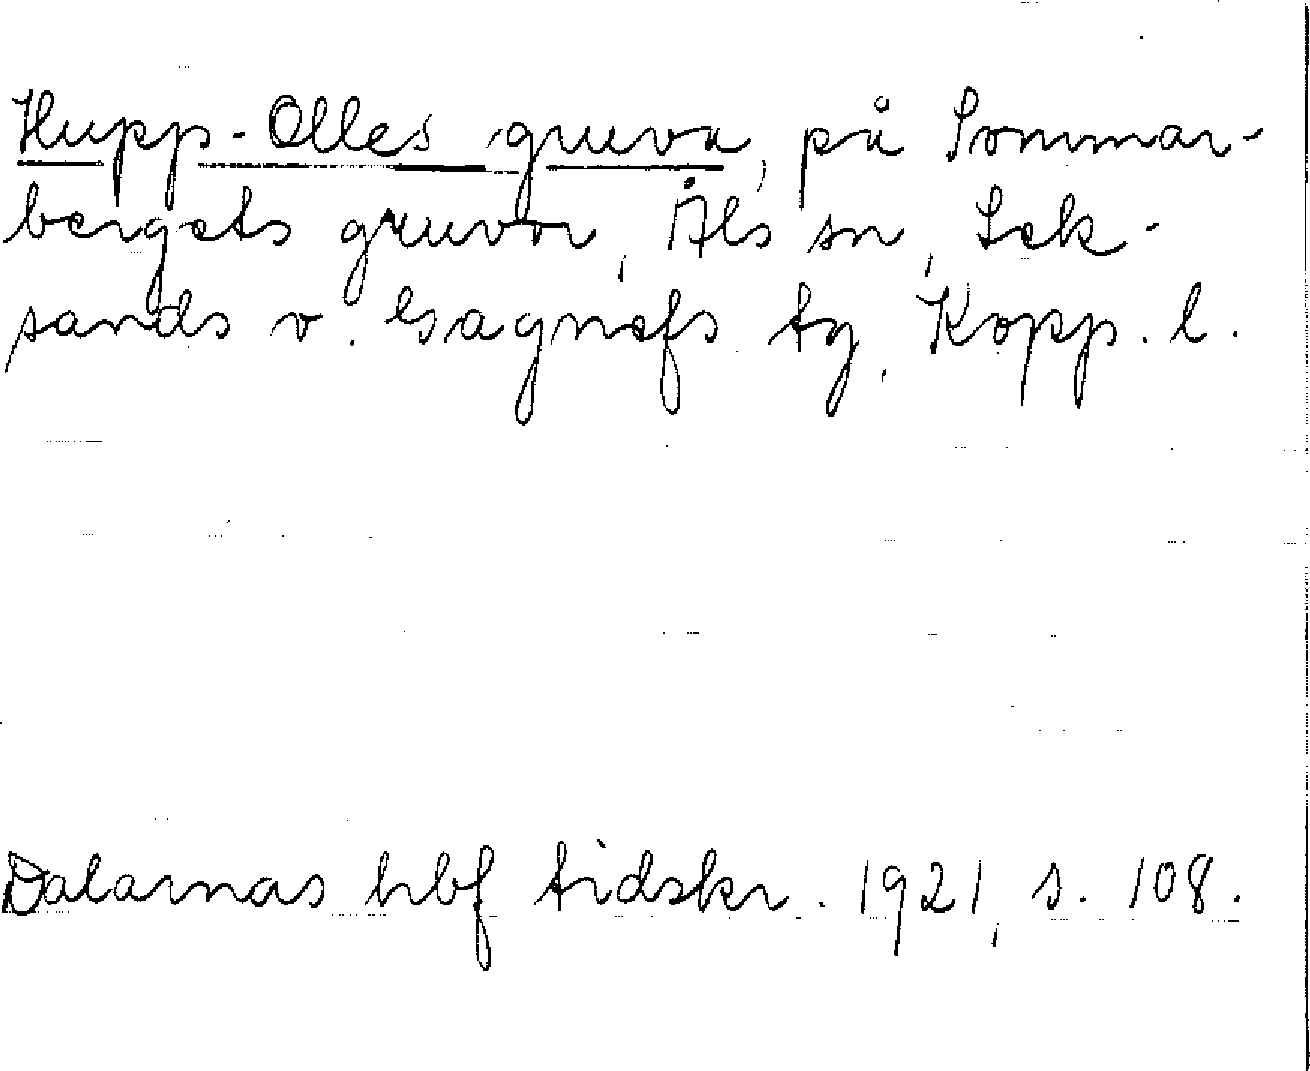 Hupp-Olles gruva, på Sommar-
bergets gruvor, Åls sn, Lek-
sands o. Gagnefs tg, Kopp. l.
Dalarnas hbf tidskr. 1921, s. 108.